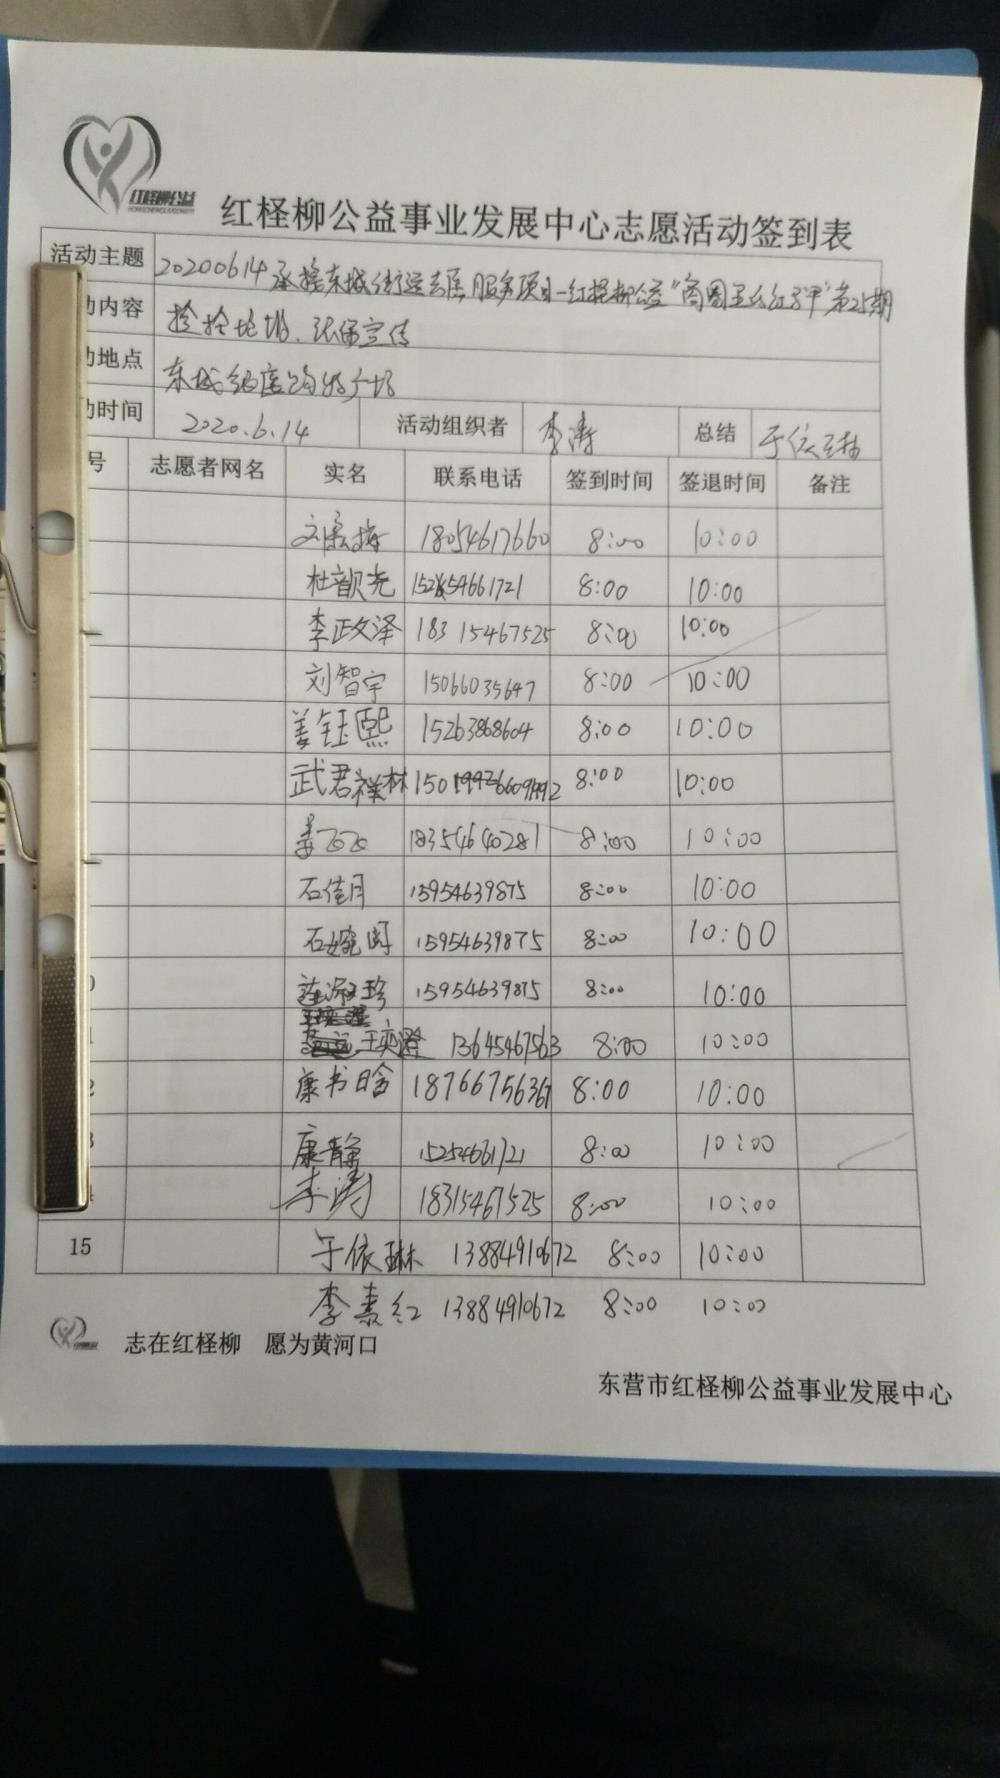 红柽柳公益
红柽柳公益事业发展中心志愿活动签到表
活动主题 20200614承接东城街道志愿服务项目—红柽柳公益"商圈 红马甲"第25期
动内容 捡拾垃圾、环保宣传
动地点 东城 广场
动时间 2020.6.14 活动组织者 李涛 总结 于依琳
号 志愿者网名 实名 联系电话 签到时间 签退时间 备注
18054617660 8:00 10:00
杜韵尧 8:00 10:00
李政泽 18315467525 8:00 10:00
刘智宇 15066035647 8:00 10:00
姜钰熙 15263868604 8:00 10:00
武君祥林 8:00 10:00
姜 18354640281 8:00 10:00
石佳月 15954639875 8:00 10:00
石婉 15954639875 8:00 10:00
0 15954639875 8:00 10:00
1 王奕澄 13645467563 8:00 10:00
2 康书晗 18766756367 8:00 10:00
3 康静 15254661721 8:00 10:00
4 李涛 18315467525 8:00 10:00
15 于依琳 13884910672 8:00 10:00
李素红 13884910672 8:00 10:00
志在红柽柳 愿为黄河口
东营市红柽柳公益事业发展中心